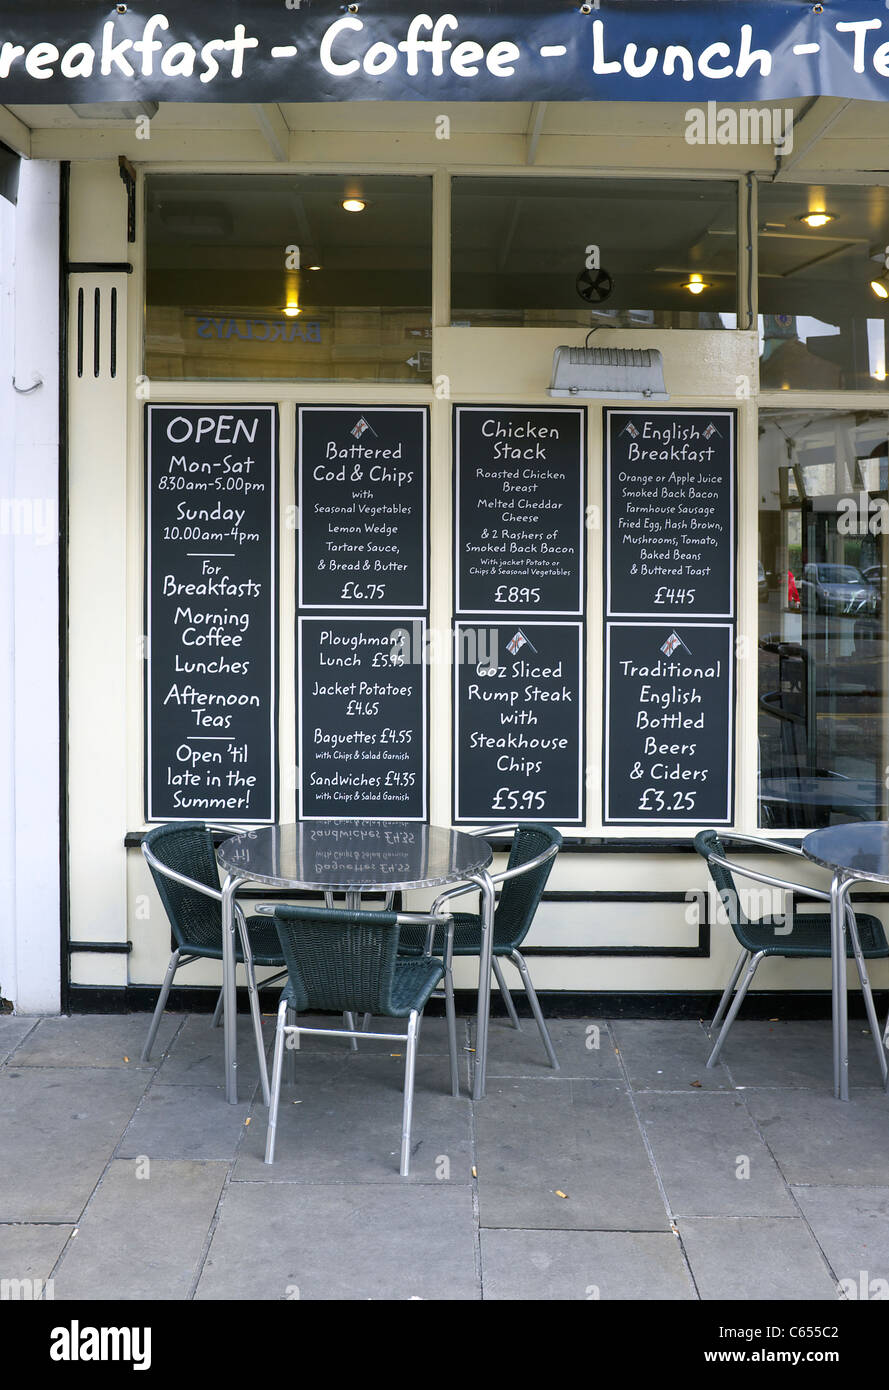 reakfast - Coffee - Lunch - Te
BARCLAYS
OPEN
Mon-Sat
8.30am-5.00pm
Sunday
10.00am-4pm
For
Breakfasts
Morning
Coffee
Lunches
Afternoon
Teas
Open 'til
late in the
Summer!
Battered
Cod & Chips
with
Seasonal Vegetables
Lemon Wedge
Tartare Sauce,
& Bread & Butter
£6.75
Ploughman's
Lunch £5.95
Jacket Potatoes
£4.65
Baguettes £4.55
with Chips & Salad Garnish
Sandwiches £4.35
with Chips & Salad Garnish
Chicken
Stack
Roasted Chicken
Breast
Melted Cheddar
Cheese
& 2 Rashers of
Smoked Back Bacon
With jacket Potato or
Chips & Seasonal Vegetables
£8.95
6oz Sliced
Rump Steak
with
Steakhouse
Chips
£5.95
English
Breakfast
Orange or Apple Juice
Smoked Back Bacon
Farmhouse Sausage
Fried Egg, Hash Brown,
Mushrooms, Tomato,
Baked Beans
& Buttered Toast
£4.45
Traditional
English
Bottled
Beers
& Ciders
£3.25
alamy
alamy
Image ID: C655C2
www.alamy.com